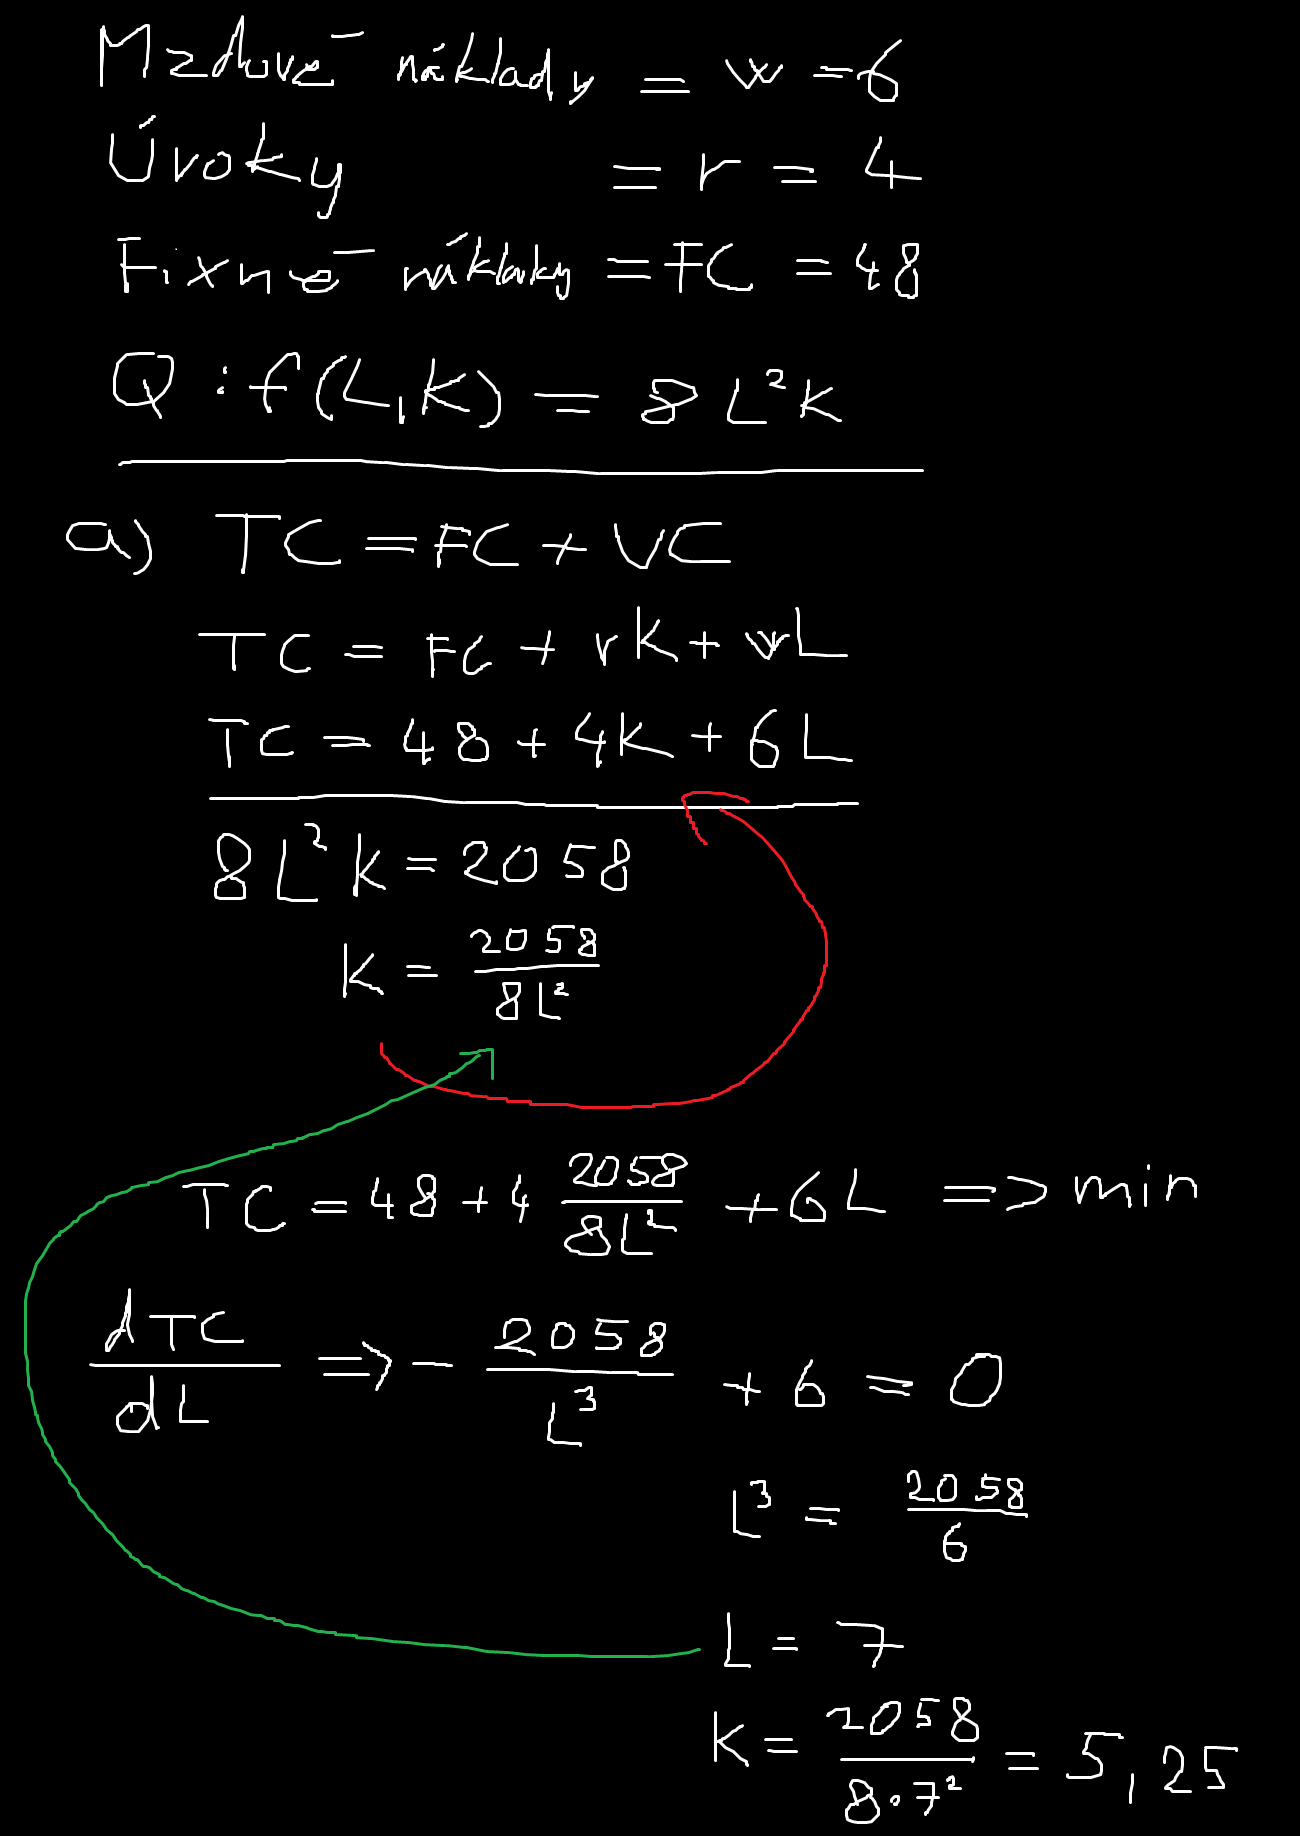 Mzdové náklady = w = 6
Úroky = r = 4
Fixné náklaky = FC = 48
Q : f(L,K) = 8L²K
a) TC = FC + VC
TC = FC + rK + wL
TC = 48 + 4K + 6L
8L²K = 2058
K = 2058/8L²
TC = 48 + 4 2058/8L² + 6L => min
dTC/dL => - 2058/L³ + 6 = 0
L³ = 2058/6
L = 7
K = 2058/8·7² = 5,25